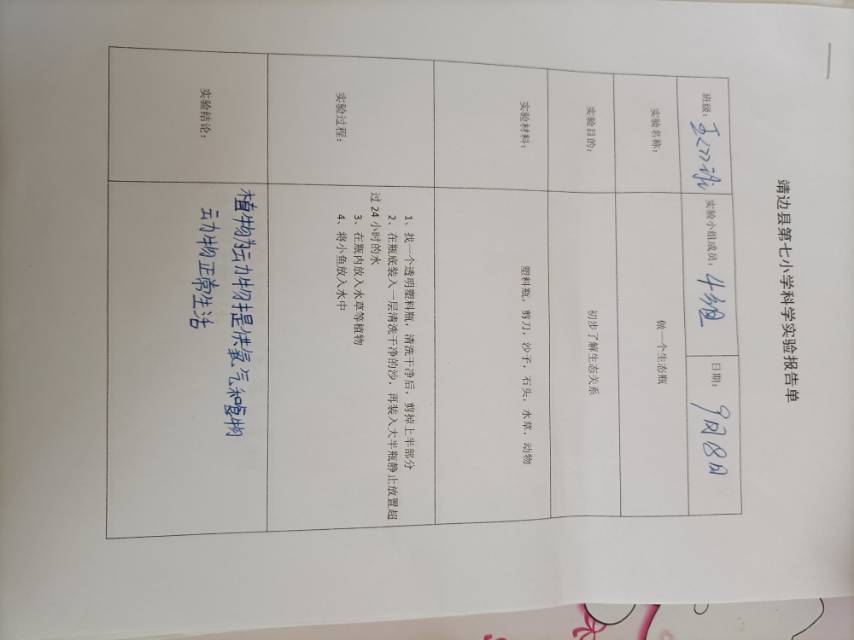 靖边县第七小学科学实验报告单
班级： 实验小组成员：4组 日期：9月18日
实验名称： 做一个生态瓶
实验目的： 初步了解生态关系
实验材料： 塑料瓶，剪刀，沙子，石头，水草，动物
实验过程：
1、找一个透明塑料瓶，清洗干净后，剪掉上半部分
2、在瓶底装入一层清洗干净的沙，再装入大半瓶静止放置超
过 24 小时的水
3、在瓶内放入水草等植物
4、将小鱼放入水中
实验结论：
植物为动物提供氧气和植物
动物正常生活